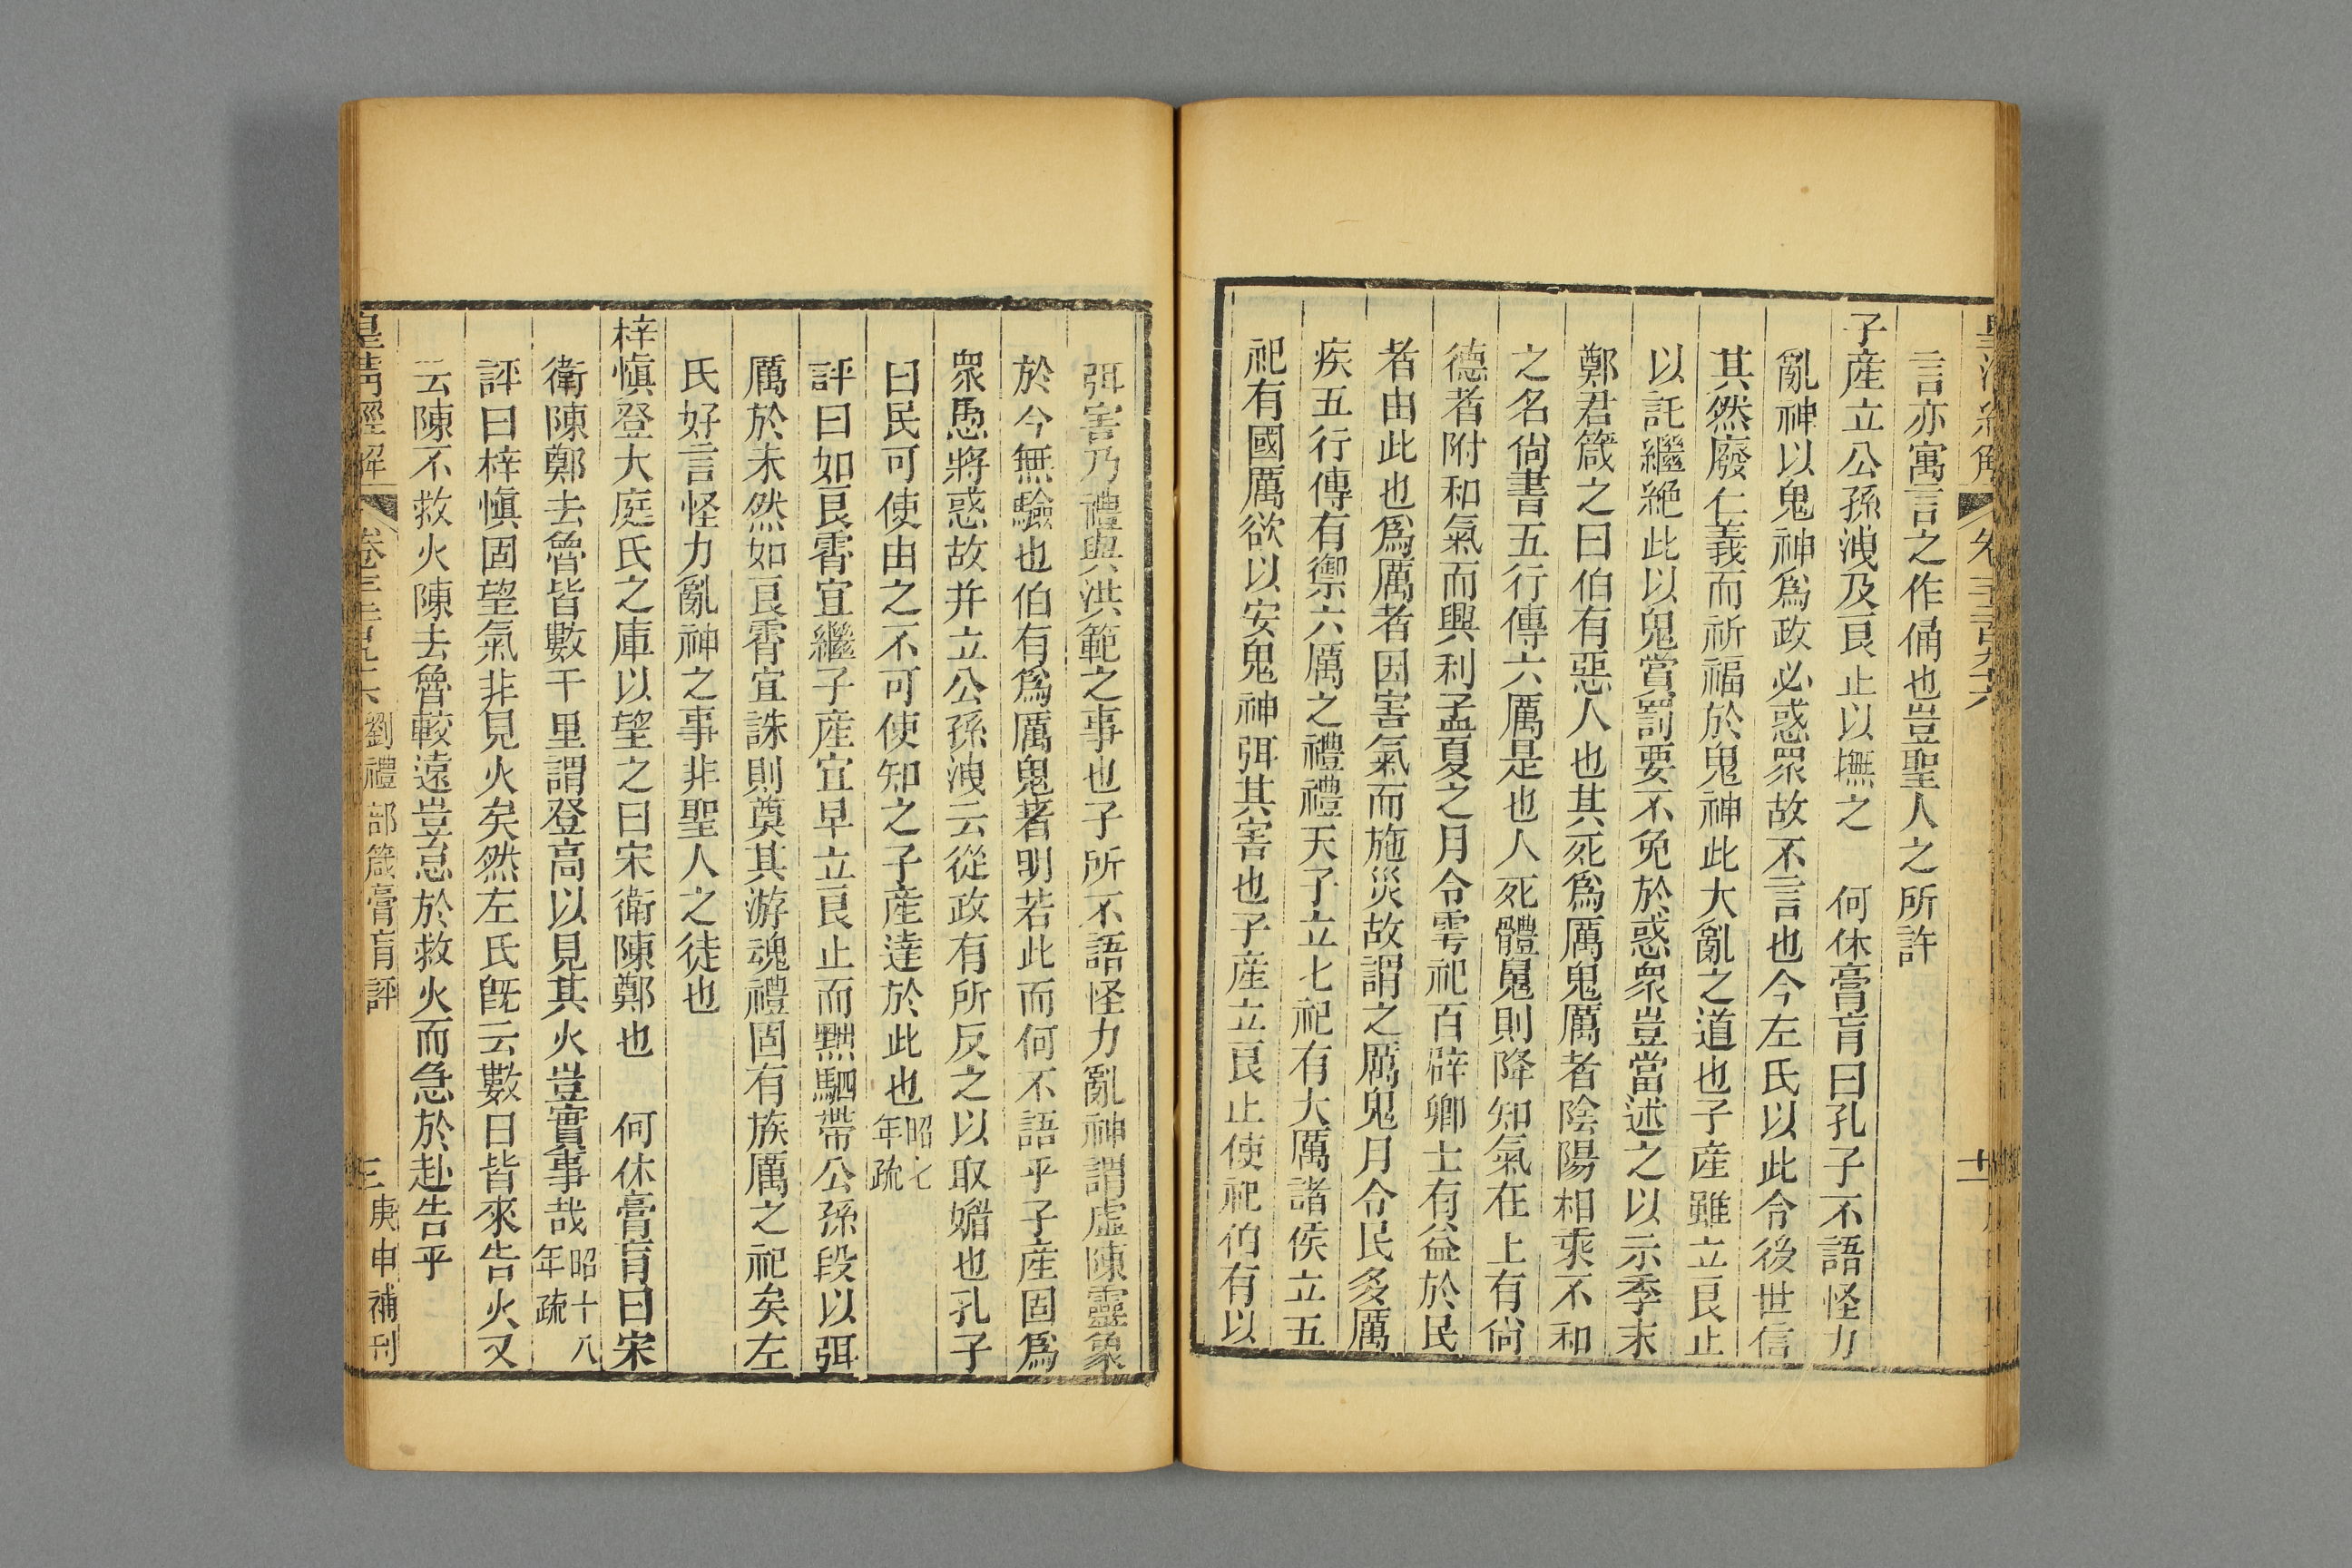 言亦寓言之作俑也豈聖人之所許
子産立公孫洩及良止以撫之　何休膏肓曰孔子不語怪力
亂神以鬼神爲政必惑眾故不言也今左氏以此令後世信
其然廢仁義而祈福於鬼神此大亂之道也子産雖立良止
以託繼絶此以鬼賞罰要不免於惑衆豈當述之以示季末
鄭君箴之曰伯有惡人也其死爲厲鬼厲者陰陽相乘不和
之名尙書五行傳六厲是也人死體魄則降知氣在上有尙
德者附和氣而興利孟夏之月令雩祀百辟卿士有益於民
者由此也爲厲者因害氣而施災故謂之厲鬼月令民多厲
疾五行傳有禦六厲之禮禮天子立七祀有大厲諸侯立五
祀有國厲欲以安鬼神弭其害也子産立良止使祀伯有以
弭害乃禮與洪範之事也子所不語怪力亂神謂虛陳靈象
於今無驗也伯有爲厲鬼著明若此而何不語乎子産固爲
衆愚將惑故并立公孫洩云從政有所反之以取媚也孔子
曰民可使由之不可使知之子産達於此也昭七年疏
評曰如良霄宜繼子産宜早立良止而黜駟帶公孫段以弭
厲於未然如良霄宜誅則奠其游魂禮固有族厲之祀矣左
氏好言怪力亂神之事非聖人之徒也
梓愼登大庭氏之庫以望之曰宋衛陳鄭也　何休膏肓曰宋
衛陳鄭去魯皆數千里謂登高以見其火豈實事哉昭十八年疏
評曰梓愼固望氣非見火矣然左氏旣云數日皆來告火又
云陳不救火陳去魯較遠豈怠於救火而急於赴告乎
皇淸經解　劉禮部箴膏肓評　庚申補刊